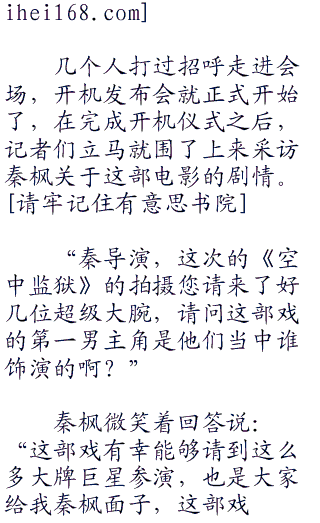 ihei168.com]
几个人打过招呼走进会
场，开机发布会就正式开始
了，在完成开机仪式之后，
记者们立马就围了上来采访
秦枫关于这部电影的剧情。
[请牢记住有意思书院]
“秦导演，这次的《空
中监狱》的拍摄您请来了好
几位超级大腕，请问这部戏
的第一男主角是他们当中谁
饰演的啊？”
秦枫微笑着回答说：
“这部戏有幸能够请到这么
多大牌巨星参演，也是大家
给我秦枫面子，这部戏